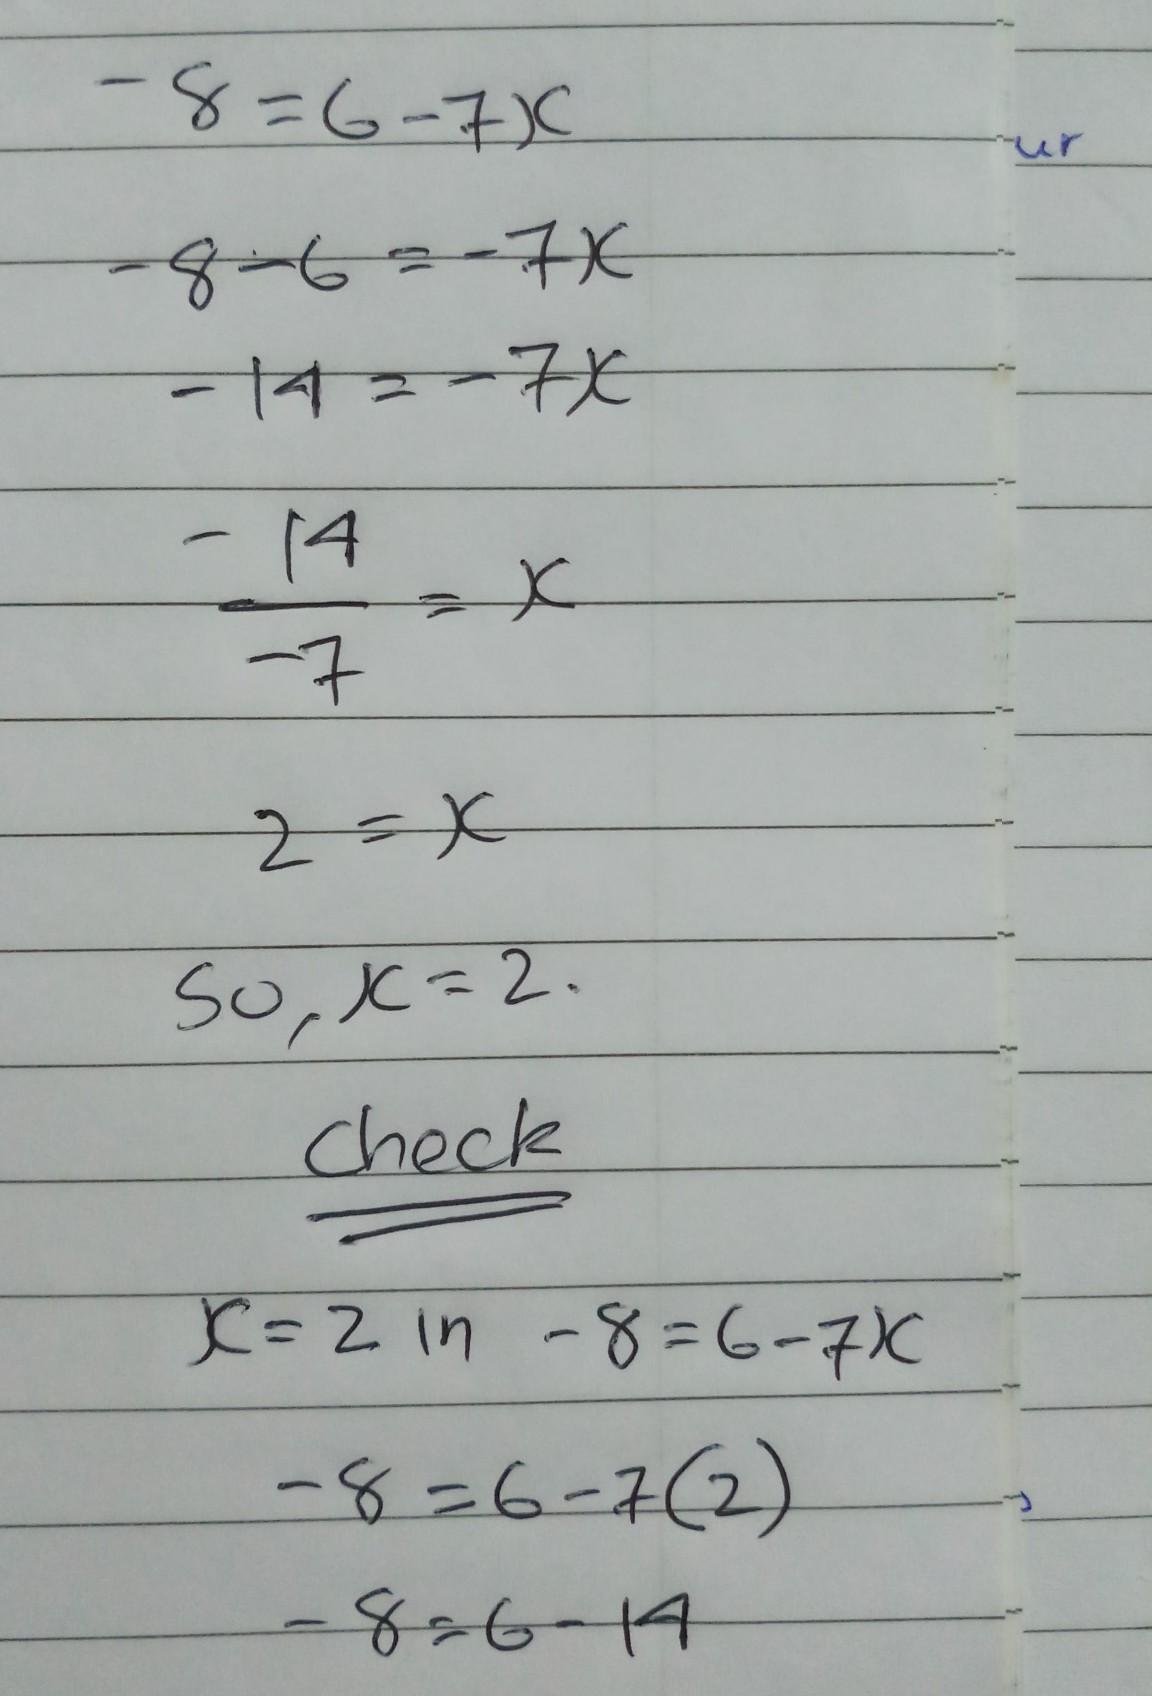 -8=6-7x
ur
-8-6=-7x
-14=-7x
-14/-7=x
2=x
So, x=2.
Check
x=2 in -8=6-7x
-8=6-7(2)
-8=6-14